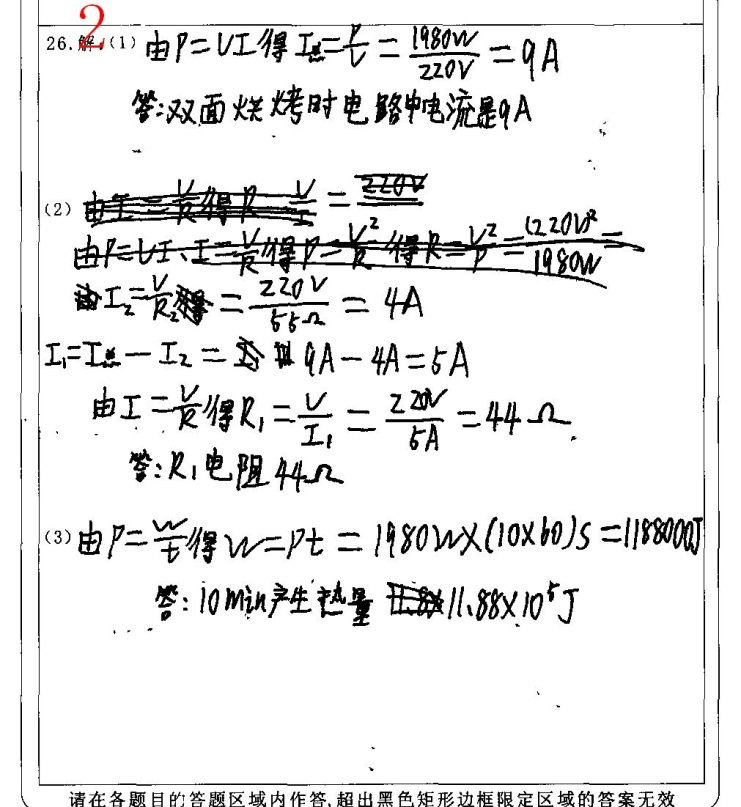 2
26.解:(1) 由P=UI得 I总=P/U = 1980W/220V = 9A
答:双面烘烤时电路中电流是9A
(2)
由P=UI、I=U/R得P=U²/R得R=U²/P=(220V)²/1980W=
由I₂=U/R₂得 = 220V/55Ω = 4A
I₁=I总-I₂= 9A-4A=5A
由I=U/R得R₁=U/I₁ = 220V/5A =44Ω.
答:R₁电阻44Ω
(3) 由P=W/t得W=Pt = 1980W×(10×60)s =1188000J
答:10min产生热量 11.88×10⁵J
请在各题目的答题区域内作答,超出黑色矩形边框限定区域的答案无效